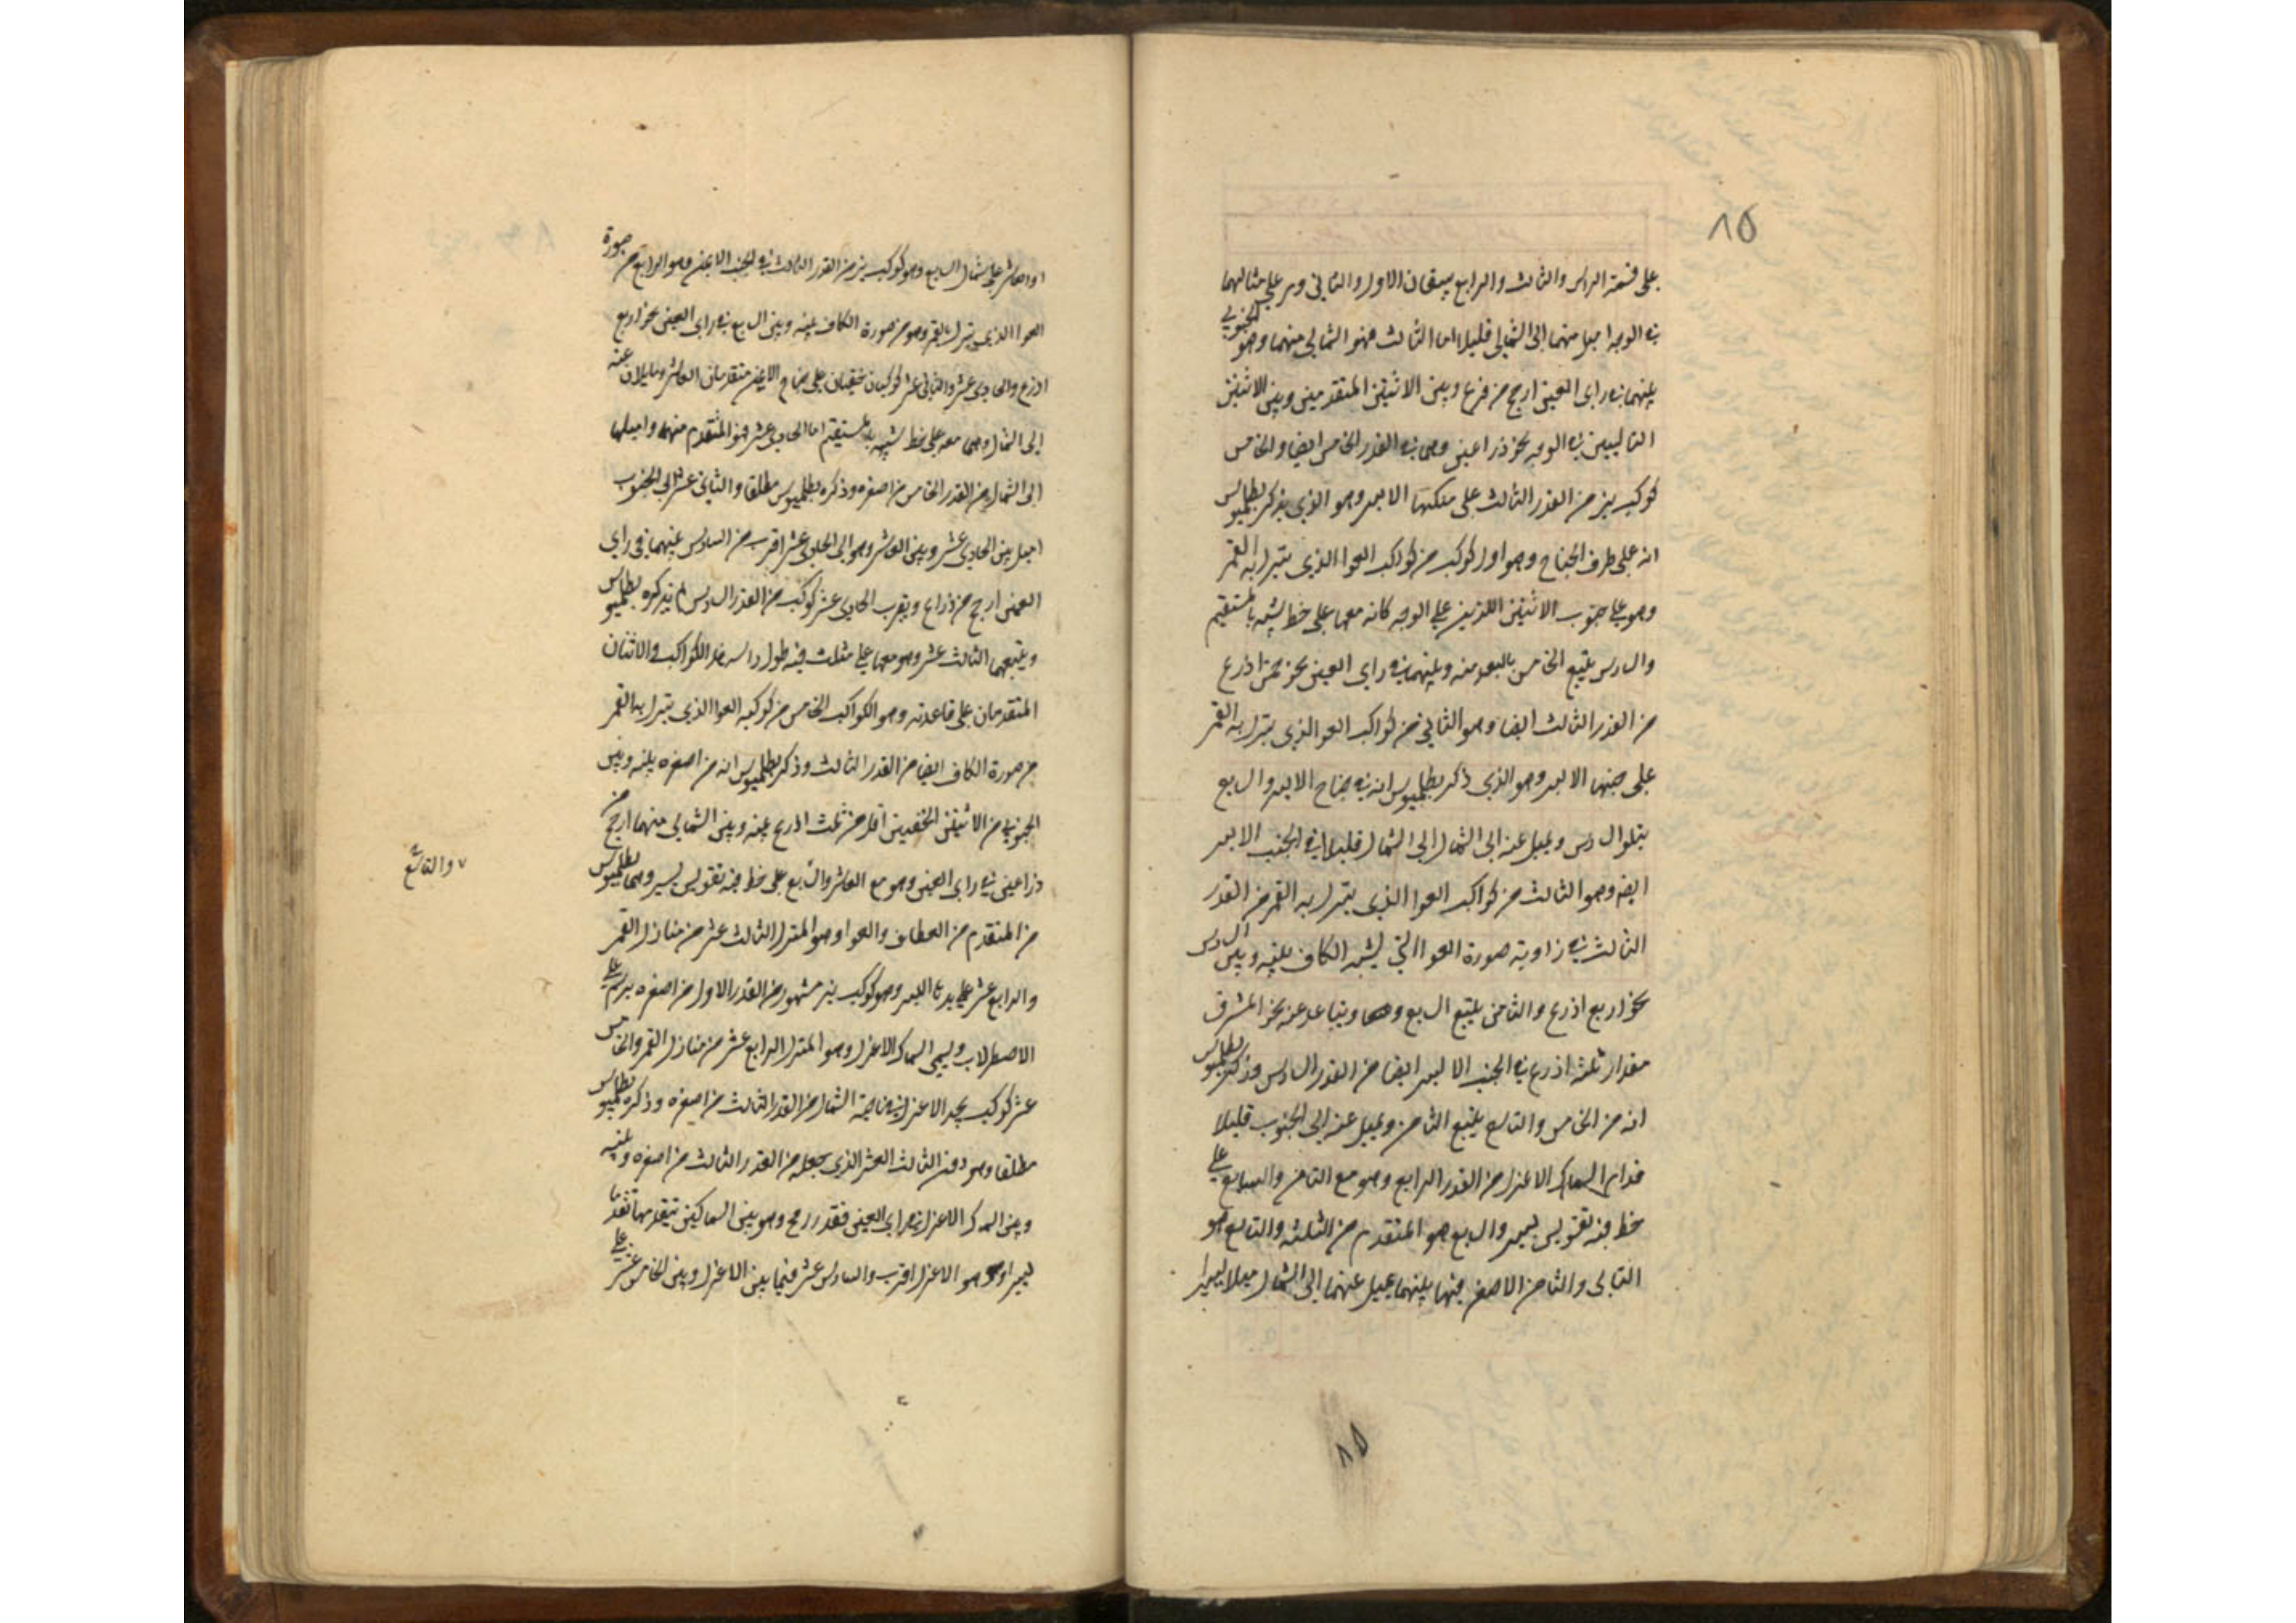 ٨٥
على قمة الراس والثالث والرابع يتبعان الاول والثانى وهما على مثالهما
فى الوجه اميل منهما الى الشمال قليلا اما الثالث فهو الشمالى منهما وهو الجنوبى
بينهما فى راى العين ارجح من ذراع وبين الاثنين المتقدمين وبين الاثنين
التاليين فى الوجه نحو ذراعين وهما فى القدر الخامس ايضا والخامس
كوكب نير من القدر الثالث على منكبها الايسر وهو الذى يذكر بطلميوس
انه على طرف الجناح وهو اول كوكب من كواكب العوا الذى ينزل به القمر
وهو على جنوب الاثنين اللذين على الوجه كانه معهما على خط يشبه بالمستقيم
والسادس يتبع الخامس بالبعد منه وبينهما فى راى العين نحو خمس اذرع
من القدر الثالث ايضا وهو الثانى من كواكب العوا الذى ينزل به القمر
على جنبها الايسر وهو الذى ذكر بطلميوس انه فى جناح الايسر والسابع
يتلو السادس ويميل عنه الى الشمال الى الشمال قليلا فى الجنب الايسر
ايضا وهو الثالث من كواكب العوا الذى ينزل به القمر من القدر
الثالث فى زاوية صورة العوا التى يشبه الكاف بينه وبين السادس
نحو اربع اذرع والثامن يتبع السابع ويتباعد عنه نحو المشرق
مقدار ثلثة اذرع فى الجنب الايسر ايضا من القدر السادس وذكر بطلميوس
انه من الخامس والتاسع يتبع الثامن ويميل عنه الى الجنوب قليلا
قدام السماك الاعزل من القدر الرابع وهو مع الثامن والسابع على
خط فيه تقويس يسير والسابع هو المتقدم من الثلثة والتاسع هو
التالى والثامن الاصغر فيها بينهما يميل عنهما الى الشمال ميلا يسيرا
٨٥
والعاشر على شمال السابع وهو كوكب نير من القدر الثالث فى الجنب الايمن وهو الرابع من صورة
العوا الذى ينزل به القمر وهو من صورة الكاف بينه وبين السابع فى راى العين نحو اربع
اذرع والحادى عشر والثانى عشر كوكبان خفيان على جناح الايمن متقدمان العاشر ومايلان عنه
الى الشمال وهما معه على خط يشبه بالمستقيم اما الحادى عشر فهو المتقدم منهما واميلهما
الى الشمال من القدر الخامس من اصغره وذكره بطلميوس مطلقا والثانى عشر الى الجنوب
اميل بين الحادى عشر وبين العاشر وهو الى الحادى عشر اقرب من السادس بينهما فى راى
العين ارجح من ذراع وبقرب الحادى عشر كوكب من القدر السادس لم يذكره بطلميوس
ويتبعهما الثالث عشر وهو معهما على مثلث فيه طول راسه هذا الكواكب والاثنان
المتقدمان على قاعدته وهو الكواكب الخامس من كوكبة العوا الذى ينزل به القمر
من صورة الكاف ايضا من القدر الثالث وذكر بطلميوس انه من اصغره بينه وبين
الجنوبى من الاثنين الخفيين اقل من ثلث اذرع بينه وبين الشمالى منهما ارجح من
ذراعين فى راى العين وهو مع العاشر والسابع على خط فيه تقويس يسير وهما بطلميوس
٧ والتاسع
من المتقدم من العطاف والعوا وهو المنزل الثالث عشر من منازل القمر
والرابع عشر على يدها اليسرى وهو كوكب نير مشهور من القدر الاول من اصغره يرسم على
الاصطرلاب ويسمى السماك الاعزل وهو المنزل الرابع عشر من منازل القمر والخامس
عشر كوكب بحد الاعزل فى ناحية الشمال من القدر الثالث من اصغره وذكره بطلميوس
مطلقا وهو دون الثالث العشر الذى جعله من القدر الثالث من اصغره وبينه
وبين السماك الاعزل فى راى العين قدر رمح وهو بين السماكين يتقدمها تقدما
يسيرا وهو الاعزل اقرب والسادس عشر فيما بين الاعزل وبين الخامس عشر على